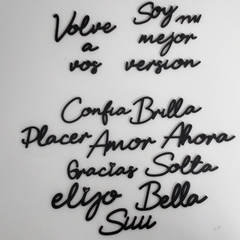 Volve
a
vos
Soy mi
mejor
version
Confia Brilla
Placer Amor Ahora
Gracias Solta
elijo Bella
Suu